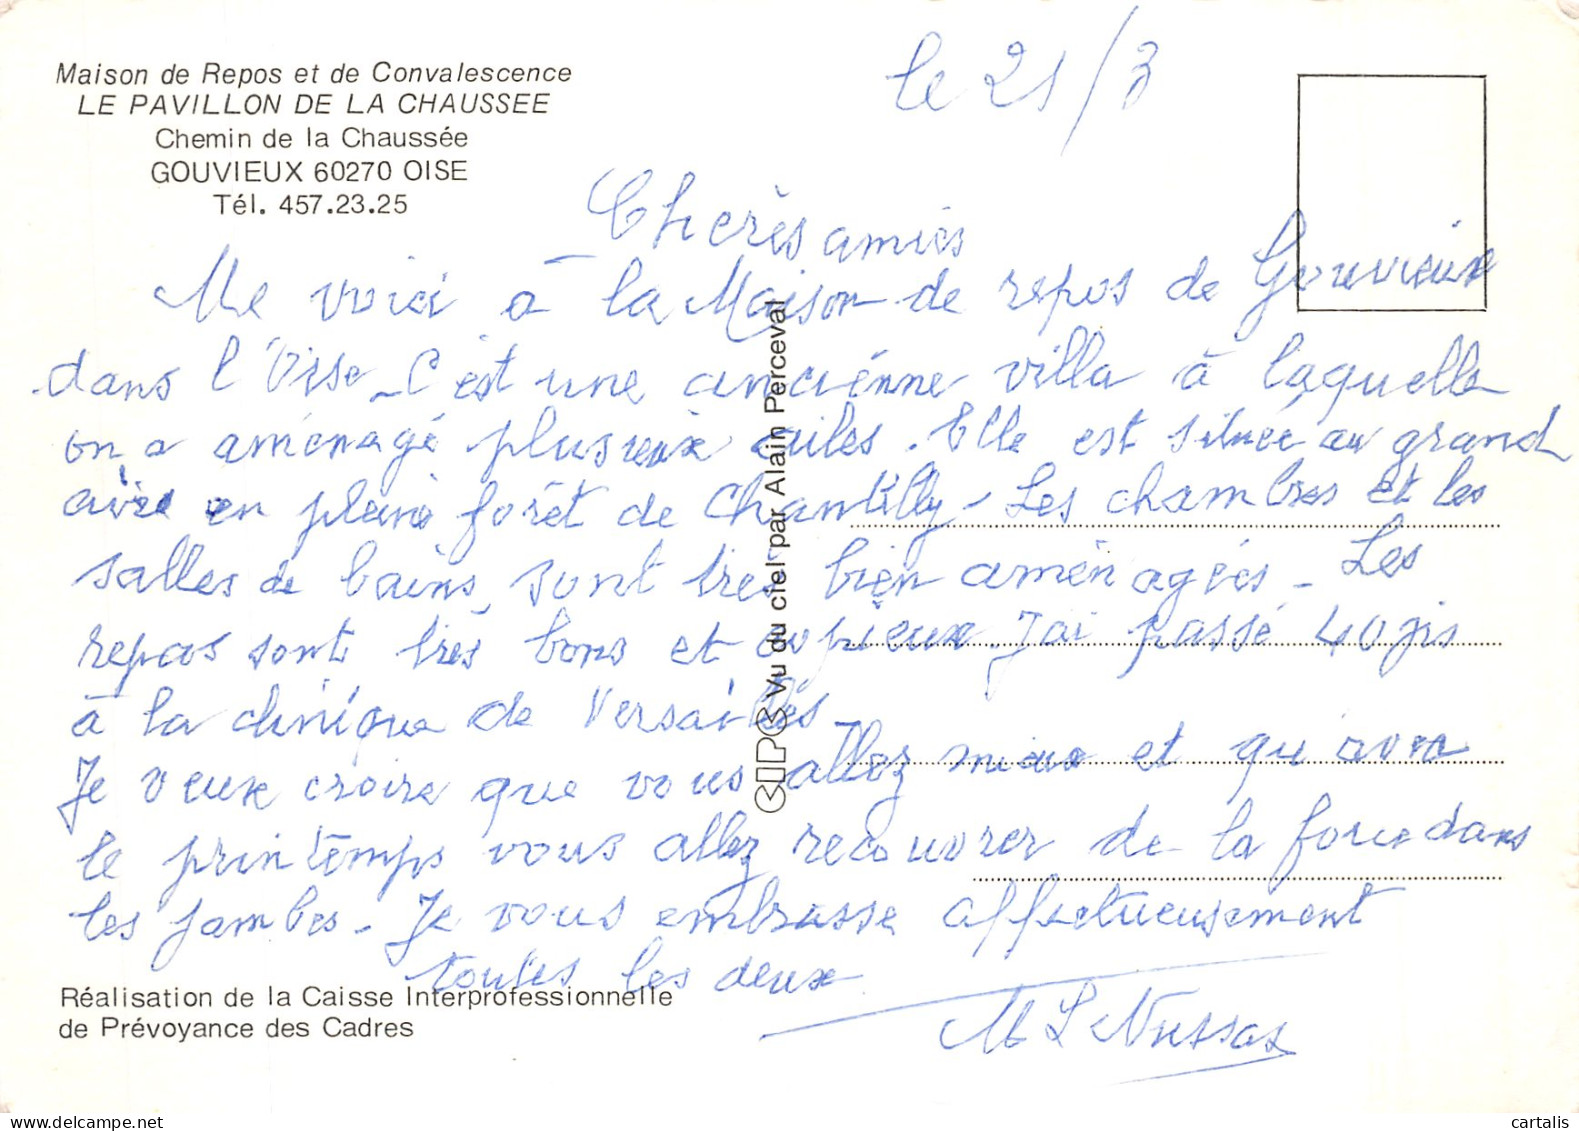 Maison de Repos et de Convalescence
LE PAVILLON DE LA CHAUSSEE
Chemin de la Chaussée
GOUVIEUX 60270 OISE
Tél. 457.23.25
le 21/3
Chères amies
Me voici à la Maison de repos de Gouvieux
dans l'Oise - C'est une ancienne villa à laquelle
on a aménagé plusieurs ailes. Elle est située au grand
air en pleine forêt de Chantilly - Les chambres et les
salles de bains sont très bien aménagées - Les
repas sont très bons et copieux. J'ai passé 40 jrs
à la clinique de Versailles -
Je veux croire que vous allez mieux et qu'avec
le printemps vous allez recouvrer de la force dans
les jambes - Je vous embrasse affectueusement
toutes les deux
M L Nussas
Réalisation de la Caisse Interprofessionnelle
de Prévoyance des Cadres
CIPC Vu du ciel par Alain Perceval
cartalis